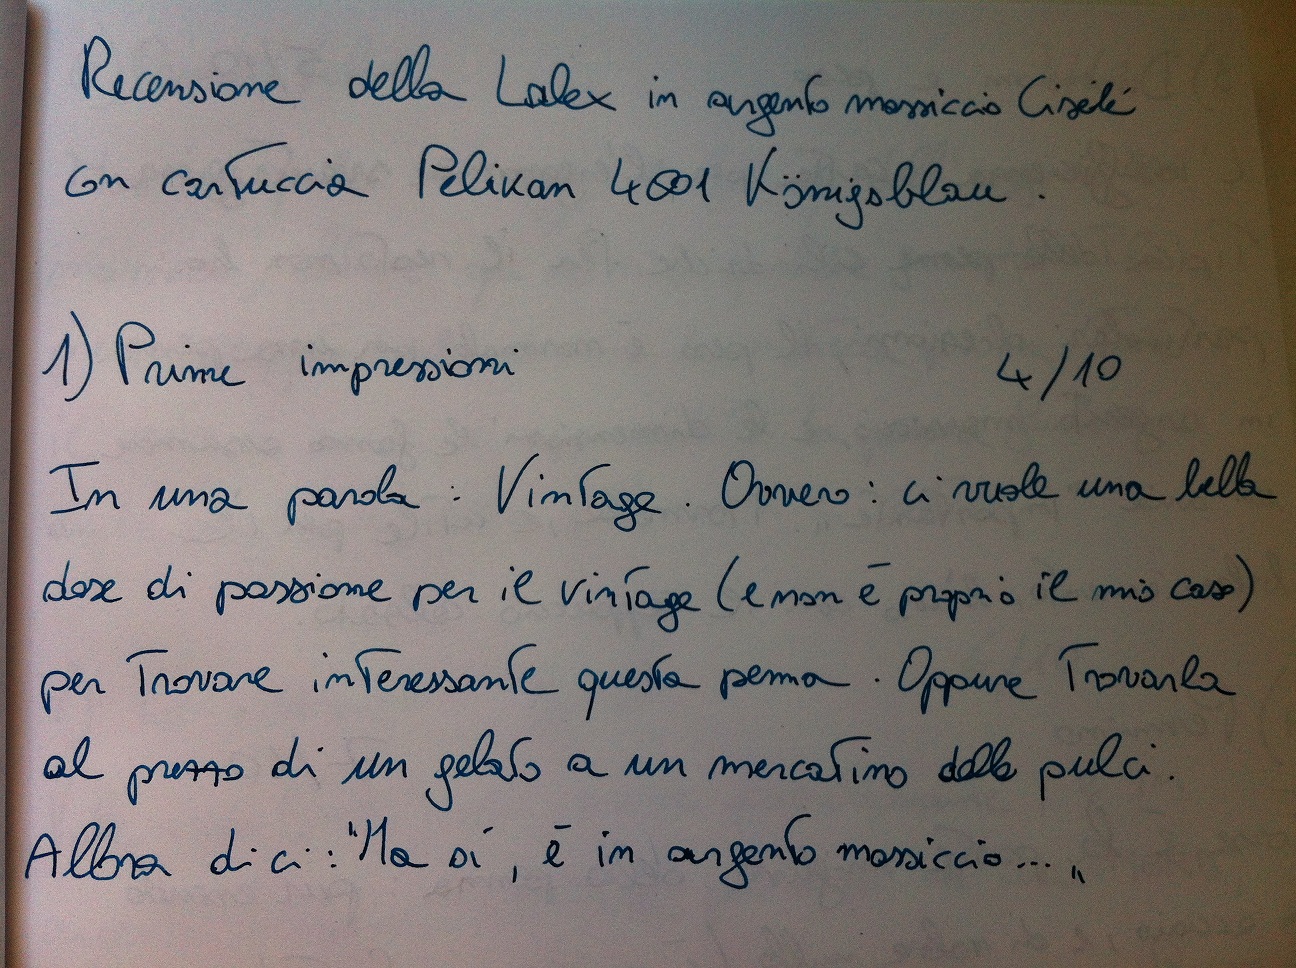 Recensione della Lalex in argento massiccio Ciselé
con cartuccia Pelikan 4001 Königsblau.
1) Prime impressioni 4/10
In una parola: Vintage. Ovvero: ci vuole una bella
dose di passione per il vintage (e non è proprio il mio caso)
per trovare interessante questa penna. Oppure trovarla
al prezzo di un gelato a un mercatino delle pulci.
Allora dici: "Ma sì, è in argento massiccio..."